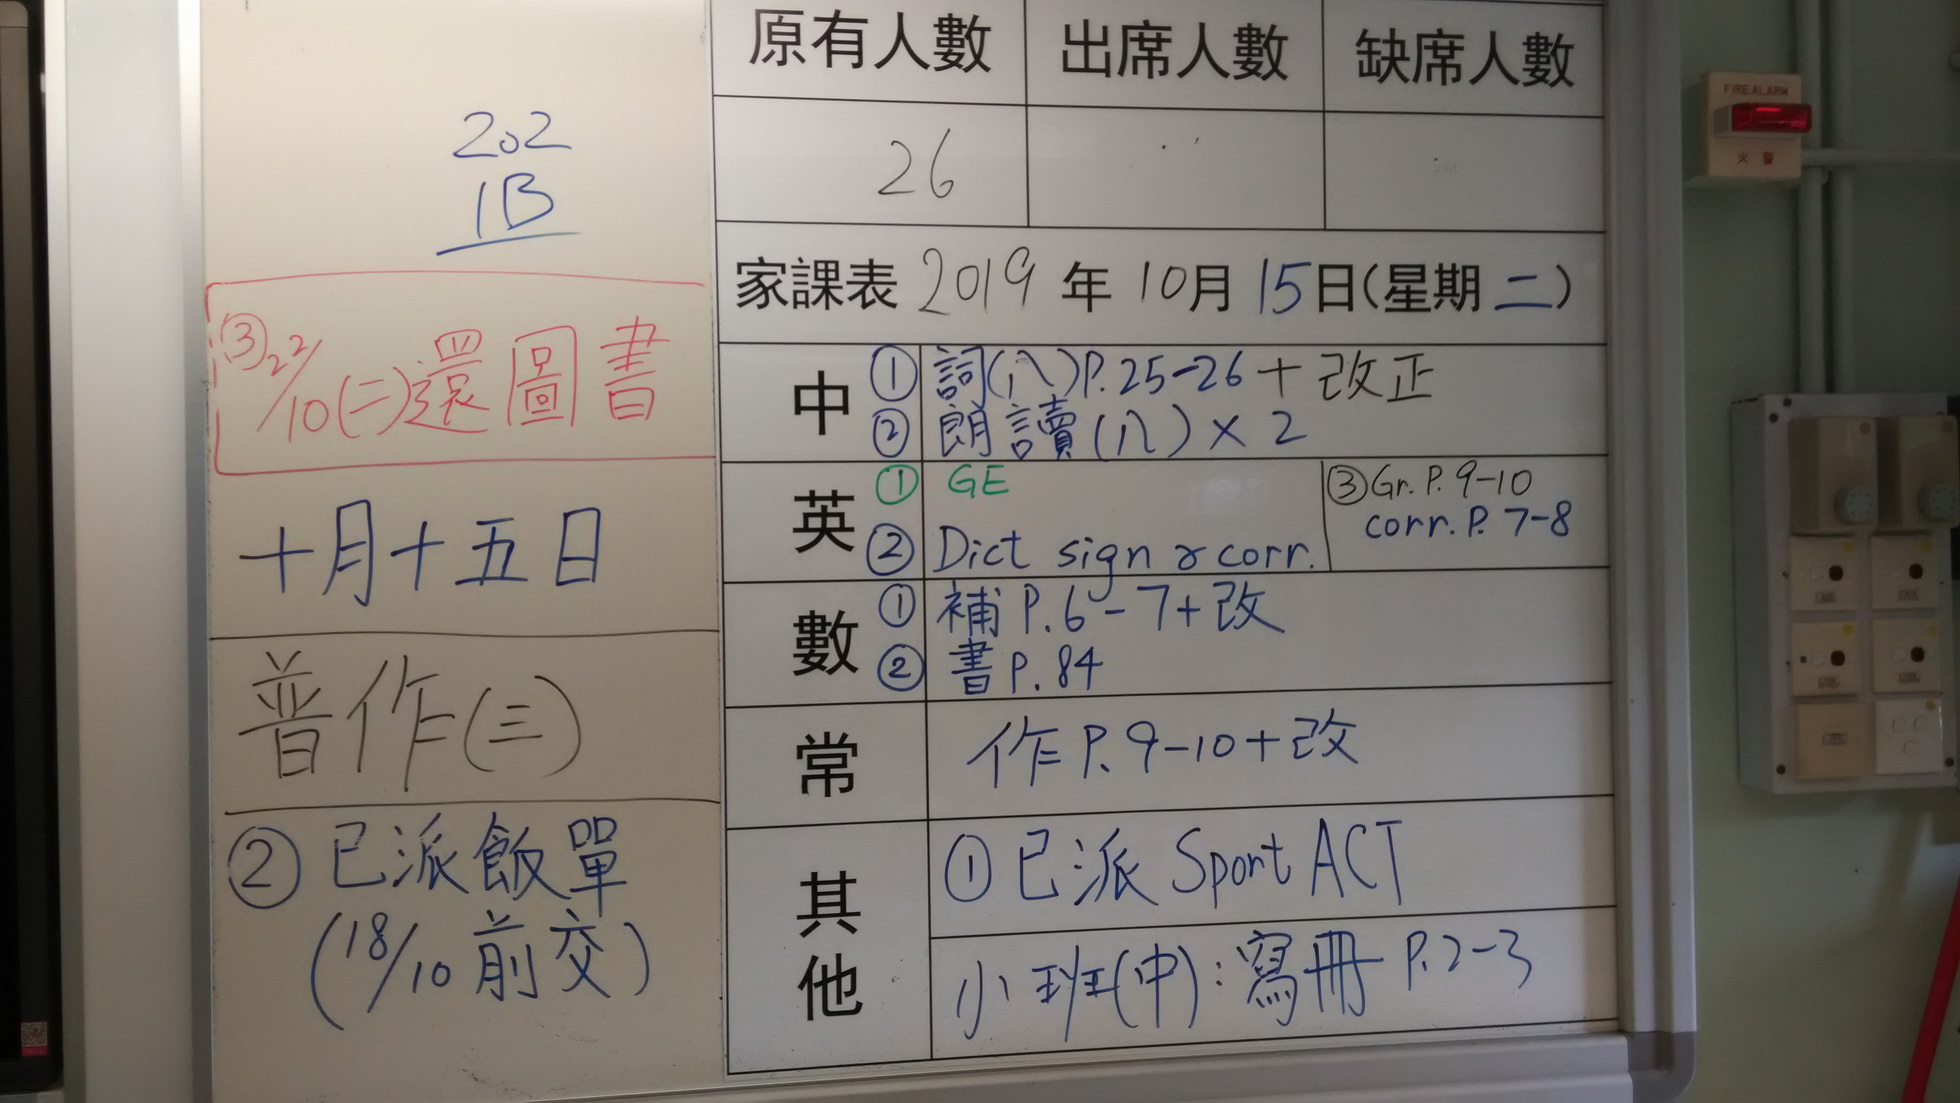 202
1B
③22/10(二)還圖書
十月十五日
普作(三)
②已派飯單
(18/10前交)
原有人數 出席人數 缺席人數
26
家課表 2019 年 10月 15日(星期 二)
中 ① 詞(八)P.25-26+改正
② 朗讀(八)×2
英 ① GE
② Dict sign & corr.
③Gr. P. 9-10
corr. P. 7-8
數 ① 補 P.6-7+改
② 書 P.84
常 作 P. 9-10+改
其他 ①已派 Sport ACT
小班(中):寫冊 P.2-3
FIRE ALARM
火警